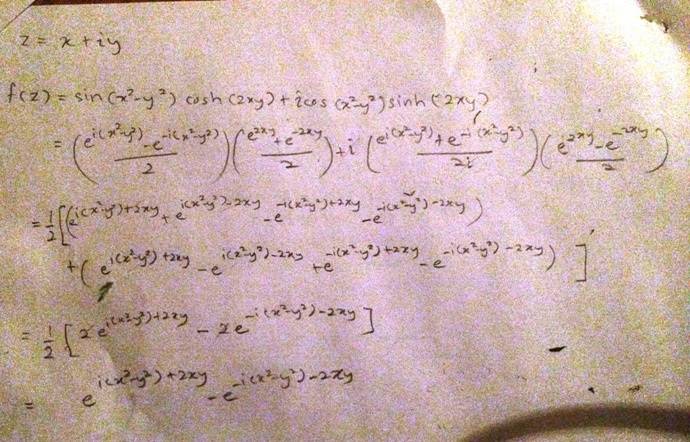 z = x + iy
f(z) = sin(x²-y²) cosh(2xy) + i cos(x²-y²) sinh(2xy)
= (e^{i(x²-y²)} - e^{-i(x²-y²)} / 2)(e^{2xy} + e^{-2xy} / 2) + i (e^{i(x²-y²)} + e^{-i(x²-y²)} / 2i)(e^{2xy} - e^{-2xy} / 2)
= 1/2 [(e^{i(x²-y²)+2xy} + e^{i(x²-y²)-2xy} - e^{-i(x²-y²)+2xy} - e^{-i(x²-y²)-2xy})
+ (e^{i(x²-y²)+2xy} - e^{i(x²-y²)-2xy} + e^{-i(x²-y²)+2xy} - e^{-i(x²-y²)-2xy})]
= 1/2 [2e^{i(x²-y²)+2xy} - 2e^{-i(x²-y²)-2xy}]
= e^{i(x²-y²)+2xy} - e^{-i(x²-y²)-2xy}